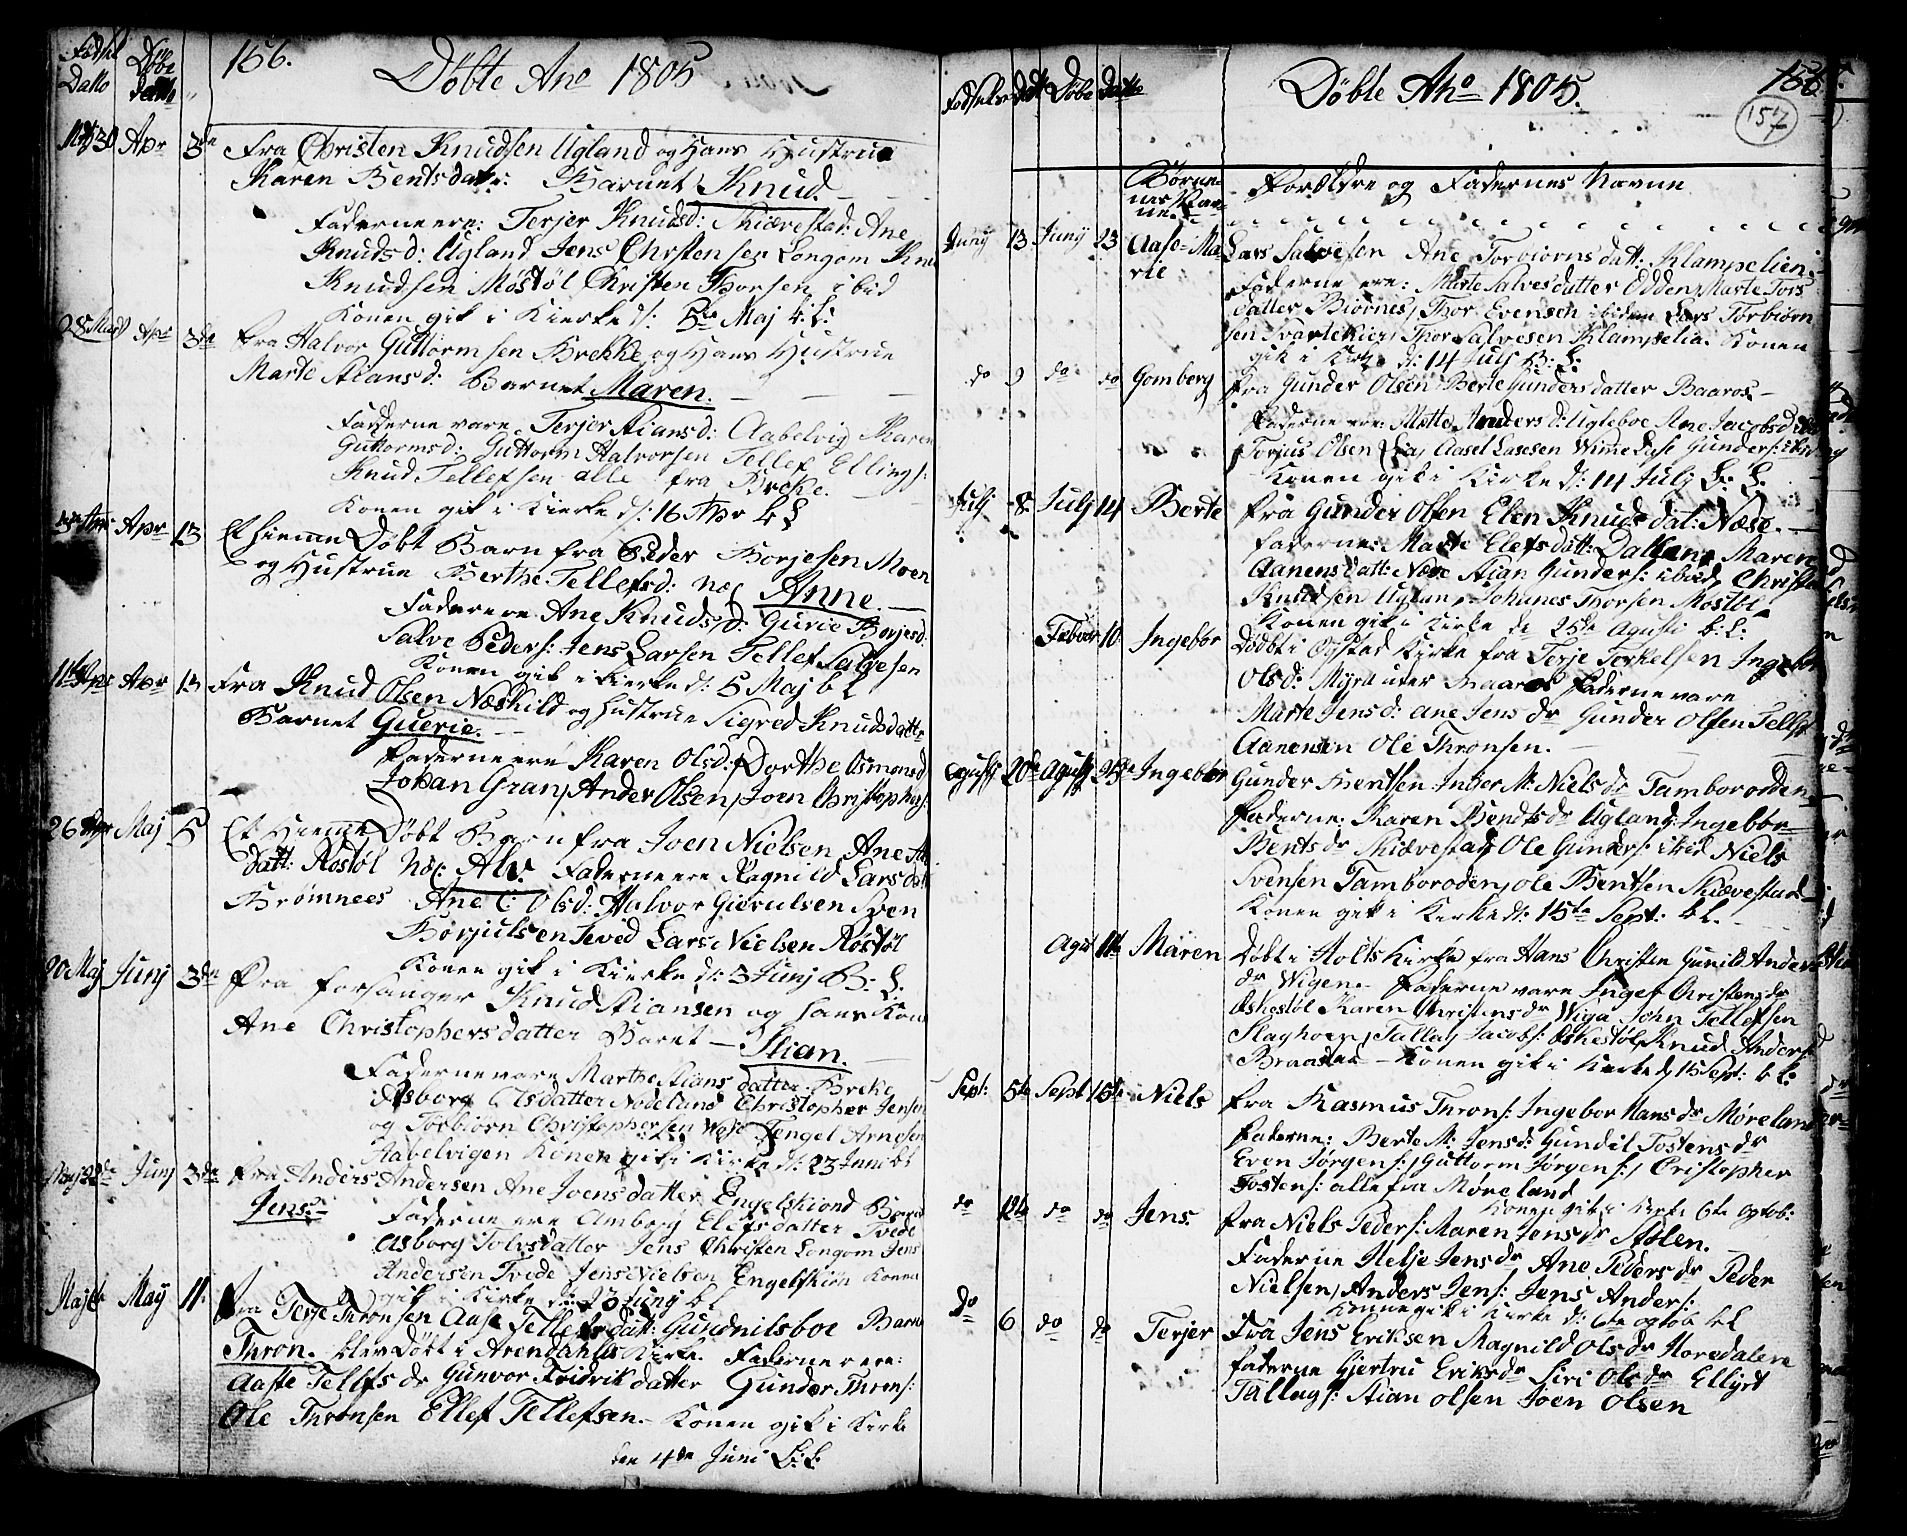 Fødsel Datto Døbe datto
156.
Døbte Ano 1805
30 Apr 3de Fra Christen Knudsen Ugland og Hans Hustrue
Karen Bentsdatr: Barnet Knud.
Fadderne ere: Terjer Knudsd: Skiævestad: Ane
Knudsd: Ugland Jens Christensen Longom Knu
Knudsen Møstøl Christen Thorsen ibid
Konen gik i Kierke d: 5te Maj b: L:
28 Mars Apr 3de fra Halvor Guttormsen Brekke og Hans Hustrue
Marte Stiansd: Barnet Maren.
Fadderne vare Terjer Stiansd: Aabelvig Karen
Guttormsd: Guttorm Halvorsen Tellef Ellings:
Knud Tellefsen alle fra Brekke.
Konen gik i Kierke d: 16 Apr b L
Apr 13 Et hiemme Døbt Barn fra Peder Borjesen Moen
og Hustrue Berthe Tellefsd: No Anne.
Fadere ere Ane Knudsd: Gurie Borjesd:
Salve Peders: Jens Larsen Tellef Salvesen
Konen gik i Kierke d: 5 Maj b L
11te Apr Apr 13 Fra Knud Olsen Næskild og Hustrue Sigred Knudsdattr
Barnet Guerie.
Fadderne ere Karen Olsd: Dorthe Osmonsd
Johan Gran, Ander Olsen, Joen Christophers:
26 Apr Maj 5 Et Hiemme Døbt Barn fra Joen Nielsen Ane
datt: Røstøl No: Alv. Fadderne ere Ragnild Larsdatt
Brømnees Ane C: Olsd: Halvor Gierulsen Sven
Børjulsen Tved Lars Nielsen Røstøl
Konen gik i Kierke d: 3 Junj B: L.
20 Maj Junj 3de Fra forsanger Knud Stiansen og hans Kone
Ane Christophersdatter Baret - Stian.
Fadderne vare Marthe Stians datter Breke
Asborg Olsdatter Nødelund Christopher Jensen
og Torbiørn Christophersen Tengel Arnesen
Aabelvigen Konen gik i Kirke d: 23 Juni b L
Maj 22de Junj 3de fra Anders Andersen Ane Joensdatter Engelskiond Barnet
Jens. Fadderne ere Amborg Elefsdatter Tvede
Asborg Tolvsdatter Jens Christen Longom Jens
Andersen Tvede Jens Nielsen Engelskiøn Konen
gik i Kirke d: 23 Junj b L
May 11. Fra Terje Thronsen Aase Tellefsdatt: Gundnilsboe Barn
Thron. blev Døbt i Arendahls Kirke. Fadderne vare:
Aaste Tellfsdr Gunvor Fridrik datter Gunder Throns:
Ole Thronsen Ellef Tellefsen - Konen gik i Kirke
den 4de Juni b: L:
Fødsels datto Døbe datto
Døbte Aho 1805.
157
Børnenes Navne
Forældre og Faddernes Navne
Junij 13 Junij 23 Aase Marie Lars Salvesen Ane Torbiørnsdatt: Klampelien
Fadderne ere: Marte Salvesdatter Odden, Marte Tors
datter Biørnes, Thor Evensen ibidem Lars Torbiørn
sen Svartekier, Thor Salvesen Klampelia. Konen
gik i Kirke d: 14 Julj B: L:
do 9 do do Gomberg fra Gunder Olsen Berte Gundersdatter Baaros -
Fadderne ere: Mette Anders d: Ugleboe Ane Jacobsd
Torjus Olsen Lia, Aasel Lasesen Lase Gunders:
Konen gik i Kirke d: 14 Julj b: L.
Julj 8 Julj 14 Berte fra Gunder Olsen Elen Knudsdat: Næse.
Fadderne: Marte Elefsdatt: Dallen, Maren
Aanensdatt: Næse Stian Gunders: ibid, Christen
Knudsen Uglan, Johanes Thorsen Møstøl
Konen gik i Kirke de 25de Agusti b: L:
Febvar 10 Ingebor Dødbt i Ogstad Kirke fra Terje Terkelsen Ingebor
Olsd: Myra Fadderne vare
Marte Jensd: Ane Jensdr Gunder Olsen Tellef
Aanensen Ole Thronsen.
Agusti 20de Agusti 25de Ingebor Gunder Bentsen Inger M: Nielsdr Tamborodden
Fadderne: Karen Bendtsdr Ugland, Ingebor
Bentsdr Skiævestad, Ole Gunders: ibid Niels
Svensen Tamboroden, Ole Bentsen Skiævestad
Konen gik i Kirke d: 15te Sept: b L.
Agust 11te Maren Døbt i Holts Kirke fra Hans Christen Gunild Anders
dr Wigen. Fadderne vare Inger Christensdr
Oskestøl Karen Christensdr Wiga John Tellefsen
Skaghoen, Tallag Jacobs: Oskestøl, Knud Anders:
Braastad - Konen gik i Kierke d 15 Sept: b L:
Sept: 5te Sept 15te Niels fra Rasmus Throns: Ingebor Hansdr Møreland
Fadderne: Berte M: Jensd: Gundil Tostensdr
Even Jørgens:, Guttorm Jørgens:, Cristopher
Tostens: alle fra Møreland
Konen gik i Kirke 6te Octob:
do 12te do do Jens. fra Niels Peders: Maren Jensdr Stølen.
Fadderne Helje Jensdr Ane Pedersdr Peder
Nielsen, Anders Jens: Jens Anders:
Konne gik i Kirke d: 6te Octob b L
Do 6 do do Terjer Fra Jens Eriksen Magnild Olsdr Horedalen
Fadderne Gjertru Eriksdr Siri Olsdr Ellyst
Tallags: Stian Olsen Joen Olsen